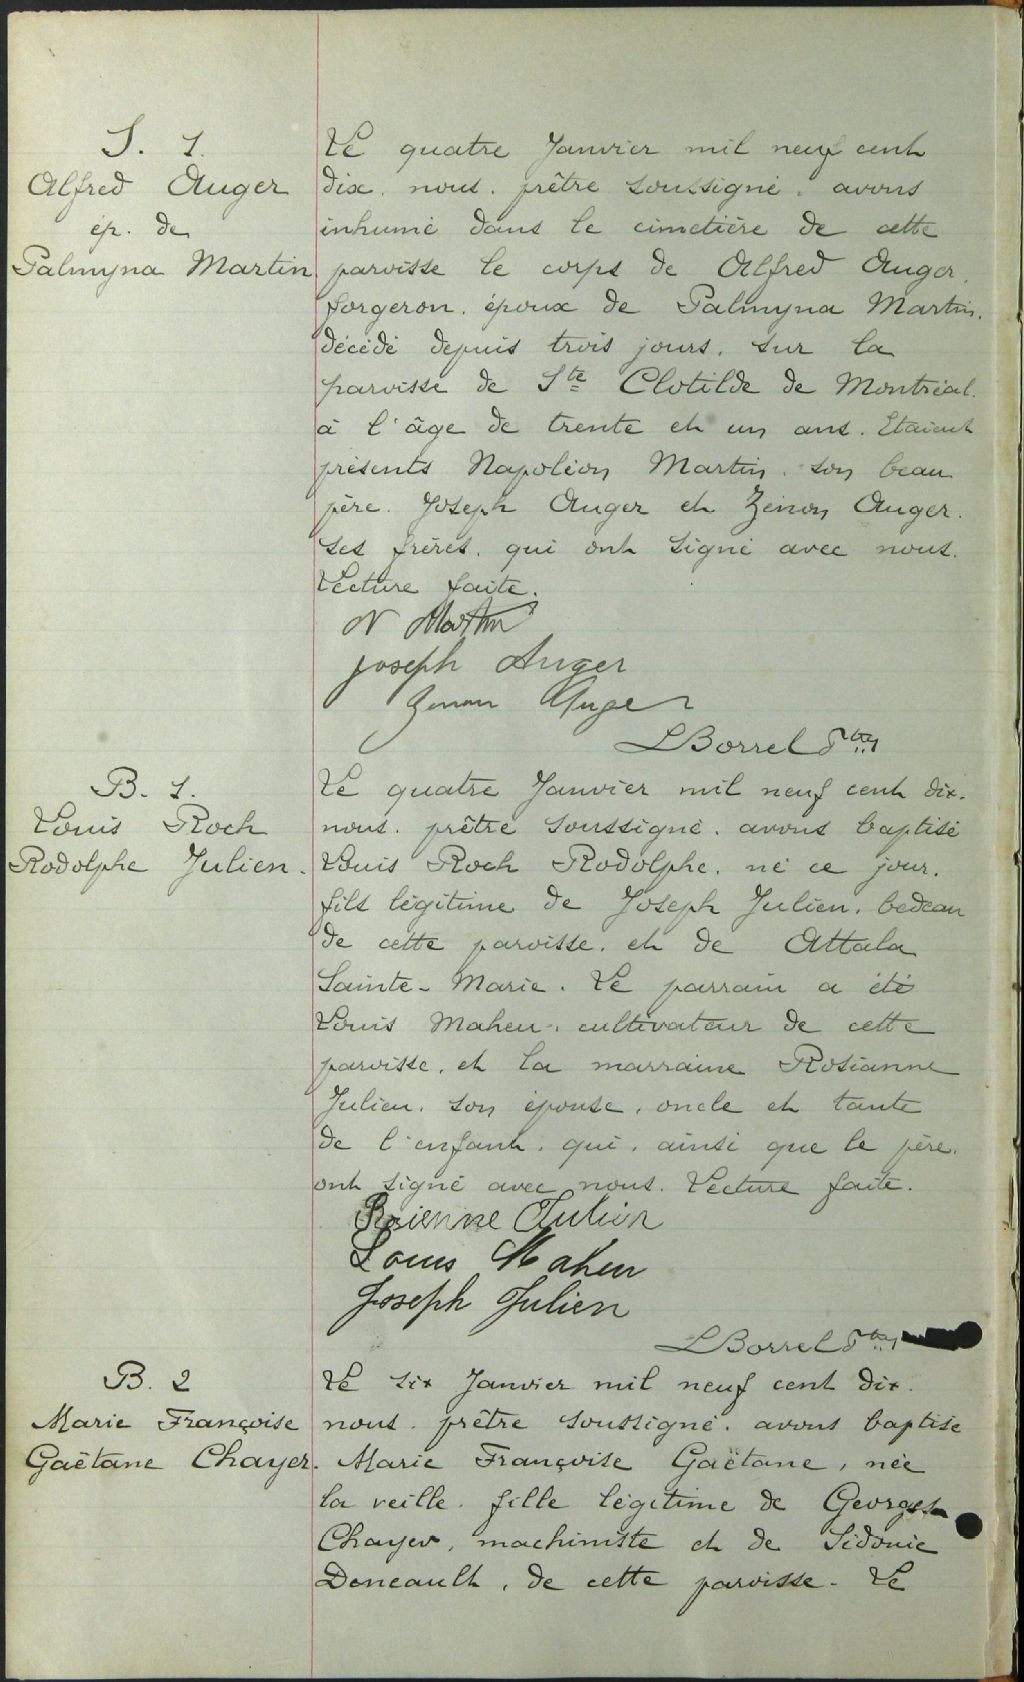 S. 1.
Alfred Auger
ép. de
Palmyna Martin
Le quatre Janvier mil neuf cent
dix, nous, prêtre soussigné, avons
inhumé dans le cimetière de cette
paroisse le corps de Alfred Auger,
forgeron, époux de Palmyna Martin,
décédé depuis trois jours, sur la
paroisse de Ste Clotilde de Montréal,
à l'âge de trente et un ans. Etaient
présents Napoléon Martin, son beau
père, Joseph Auger et Zénon Auger,
ses frères, qui ont signé avec nous.
Lecture faite.
N Martin
Joseph Auger
Zenon Auger
L Borrel Ptre
B. 1.
Louis Roch
Rodolphe Julien.
Le quatre Janvier mil neuf cent dix,
nous, prêtre soussigné, avons baptisé
Louis Roch Rodolphe, né ce jour,
fils légitime de Joseph Julien, bedeau
de cette paroisse, et de Attala
Sainte-Marie. Le parrain a été
Louis Maheu, cultivateur de cette
paroisse, et la marraine Rosianne
Julien, son épouse, oncle et tante
de l'enfant, qui, ainsi que le père,
ont signé avec nous. Lecture faite.
Rosienne Julien
Louis Maheu
Joseph Julien
L Borrel Ptre
B. 2
Marie Françoise
Gaëtane Chayer.
Le six Janvier mil neuf cent dix,
nous, prêtre soussigné, avons baptisé
Marie Françoise Gaëtane, née
la veille, fille légitime de Georges
Chayer, machiniste et de Sidonie
Doneault, de cette paroisse. Le